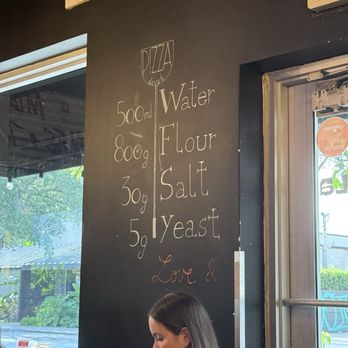 PIZZA
500ml Water
800g Flour
30g Salt
5g Yeast
Love &